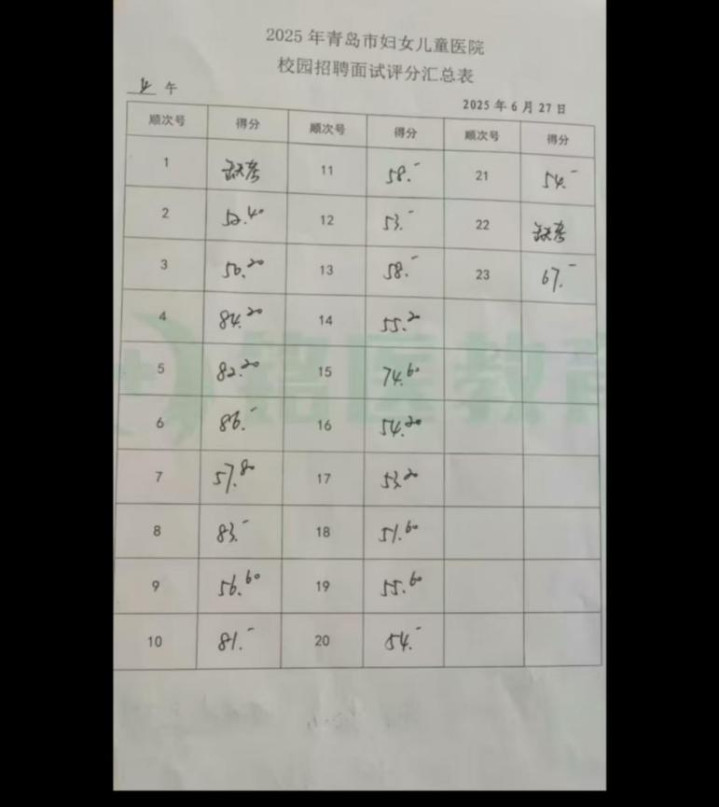 2025年青岛市妇女儿童医院
校园招聘面试评分汇总表
上 午
2025年6月27日
顺次号 得分 顺次号 得分 顺次号 得分
1 缺考 11 58.- 21 54.-
2 52.40 12 53.- 22 缺考
3 56.20 13 58.- 23 67.-
4 84.20 14 55.20
5 82.20 15 74.60
6 86.- 16 54.20
7 57.80 17 53.20
8 83.- 18 51.60
9 56.60 19 55.60
10 81.- 20 54.-
医教育